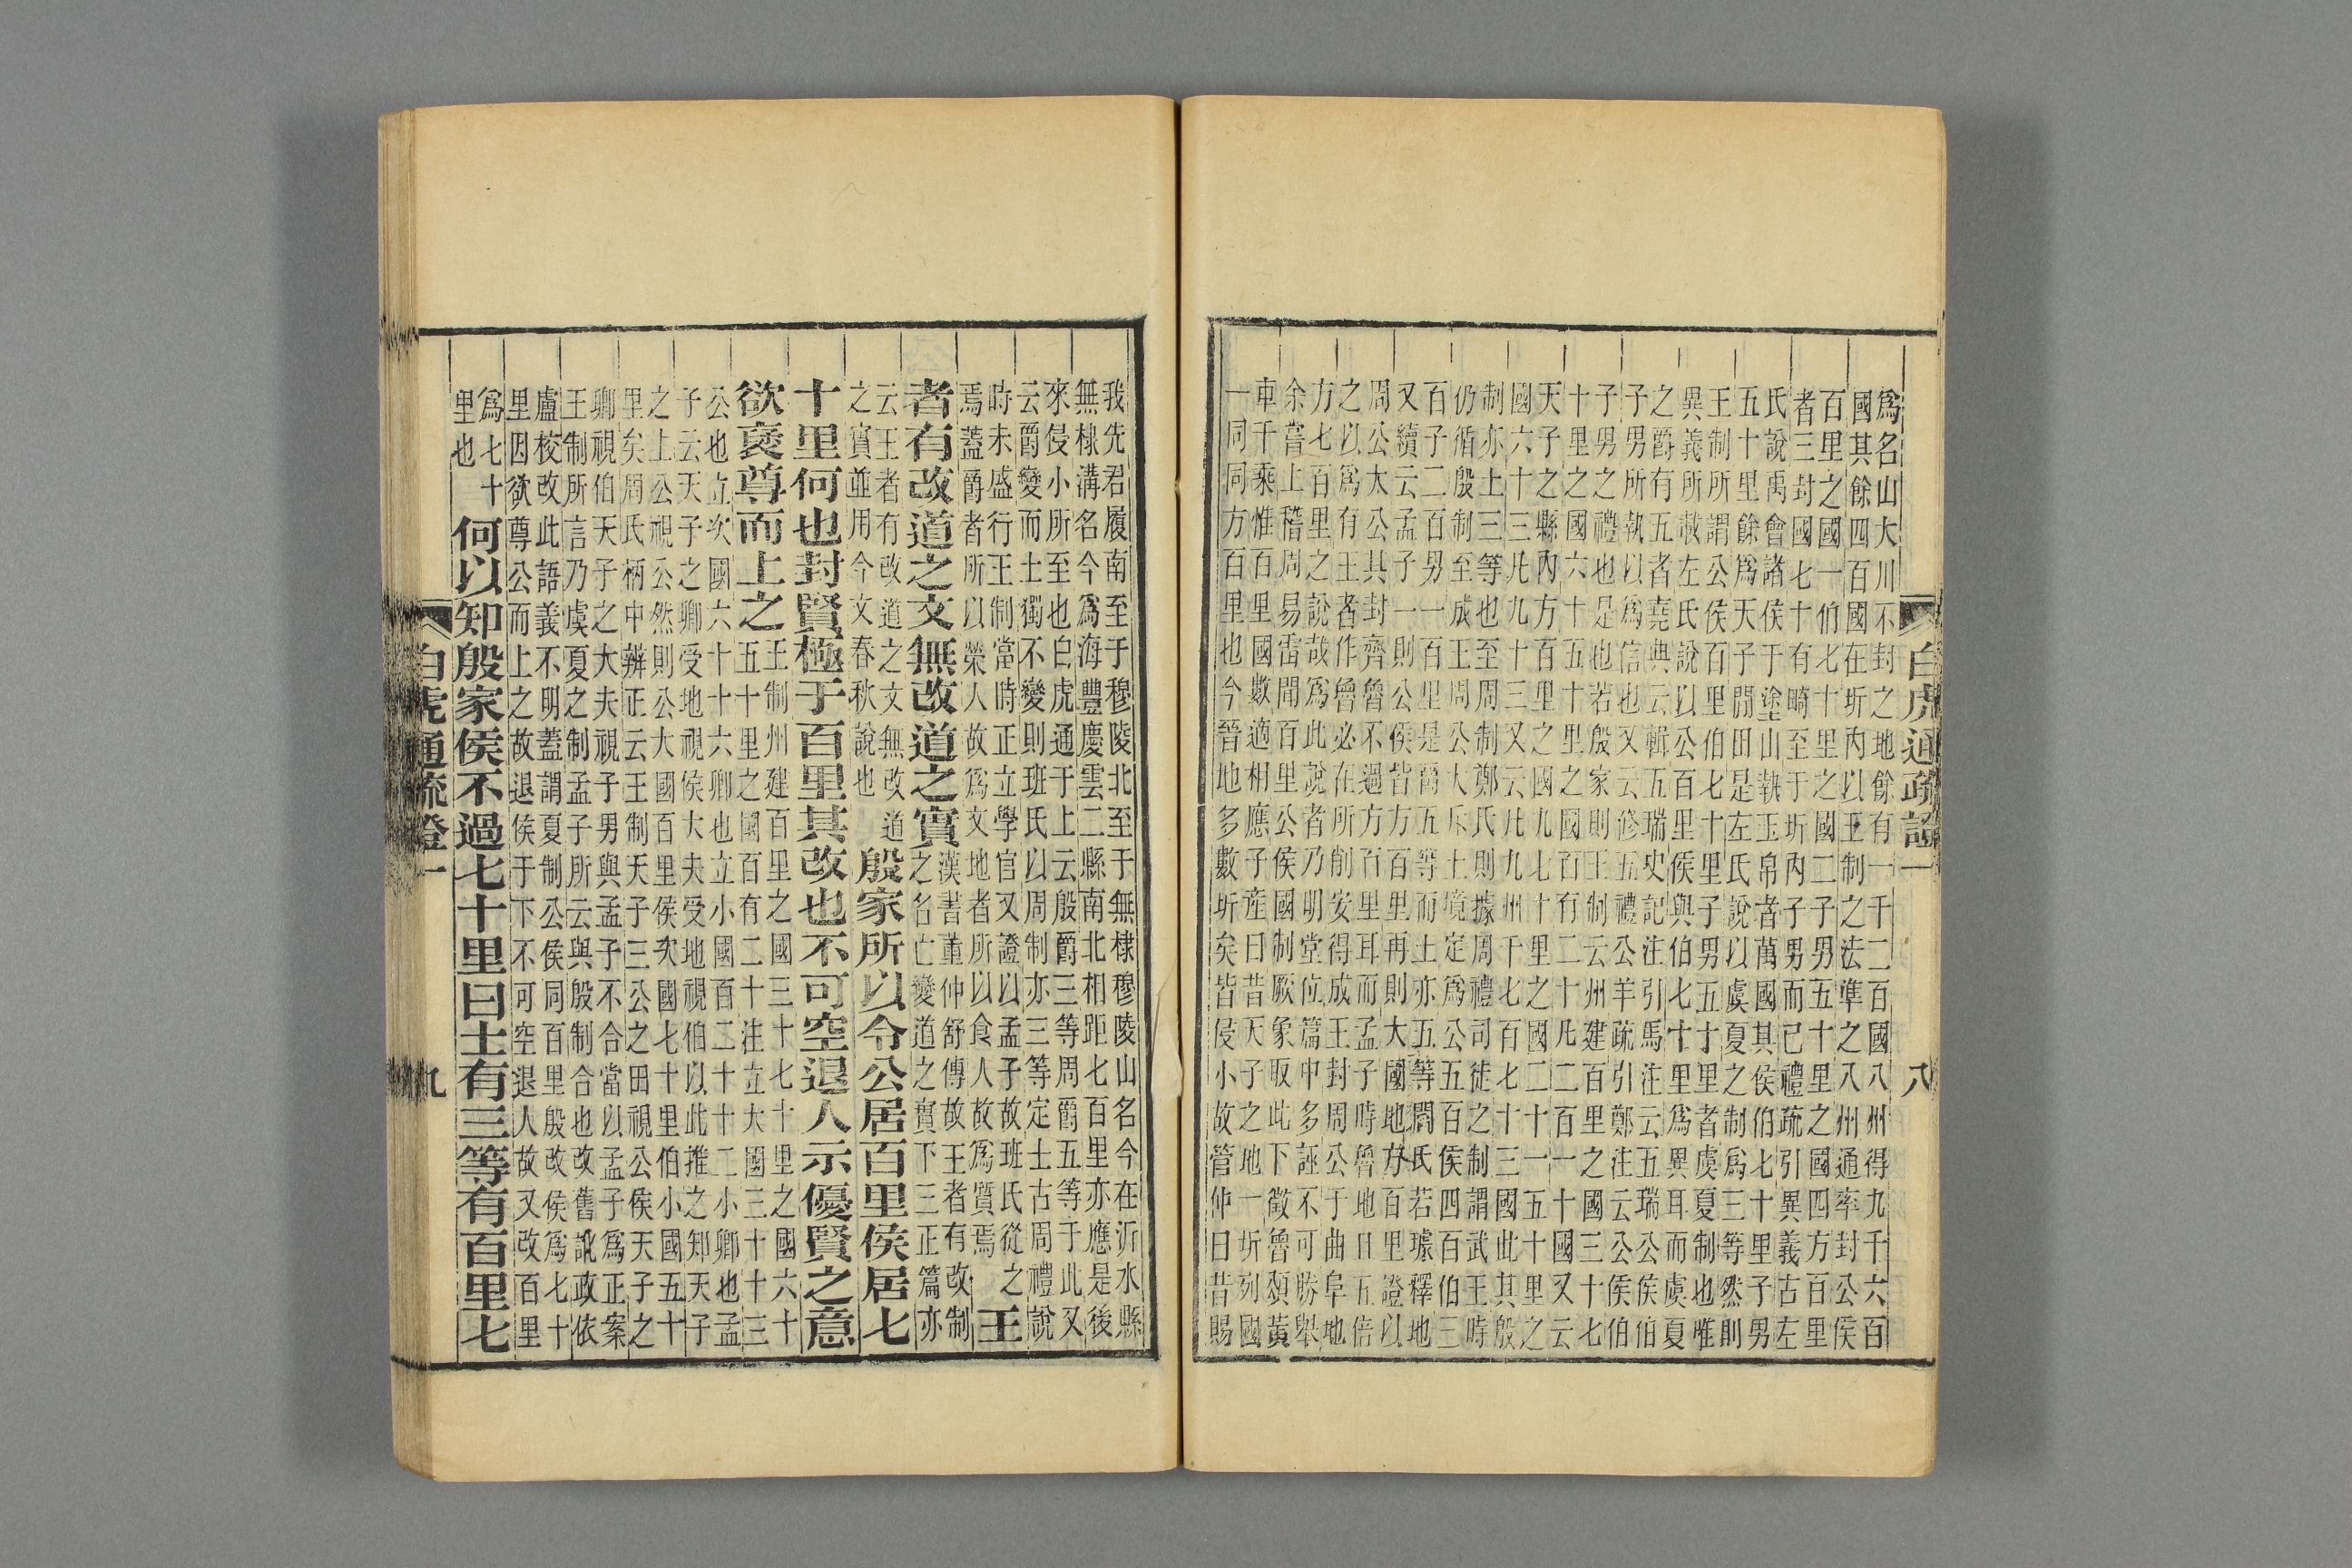 白虎通疏證一
八
爲名山大川不封之地餘有一千二百國八州得九千六百
國其餘四百國在圻內以王制之法準之八州通率封公侯
百里之國一伯七十里之國二子男五十里之國四方百里
者三封國七十有畸至于圻內子男而已禮疏引異義古左
氏說禹會諸侯于塗山執玉帛者萬國其侯伯七十里子男
五十里餘爲天子閒田是左氏說以虞夏之制爲三等然則
王制所謂公侯百里伯七十里子男五十里者虞夏制也唯
異義所載左氏說以公百里侯與伯七十里爲異耳而虞夏
之爵有五者堯典云輯五瑞史記注引馬注云五瑞公侯伯
子男所執以爲信也又云修五禮公羊疏引鄭注云公侯伯
子男之禮也是也若殷家則王制云州建百里之國三十七
十里之國六十五十里之國百有二十凡二百一十國又云
天子之縣內方百里之國九七十里之國二十一五十里之
國六十三凡九十三又云凡九州千七百七十三國此其殷
制亦上三等也至周制鄭氏則據周禮司徒之制謂武王時
仍循殷制至成王周公大斥土境定爲公五百侯四百伯三
百子二百男一百里是爵五等而土亦五等閻氏若璩釋地
又續云孟子一則公侯皆方百里再則大國地方百里證以
周公太公其封齊魯不過方百里耳而孟子時魯地且五倍
之以爲有王者作魯必在所削安得成王封周公于曲阜地
方七百里之說哉爲此說者乃明堂位篇中多誣不可勝舉
余嘗上稽周易雷聞百里公侯國制厥象取此下徵魯頌黃
車千乘惟百里國數適相應子產曰昔天子之地一圻列國
一同同方百里也今晉地多數圻矣皆侵小故管仲曰昔賜
我先君履南至于穆陵北至于無棣穆陵山名今在沂水縣
無棣溝名今爲海豐慶雲二縣南北相距七百里亦應是後
來侵小所至也白虎通于上云殷爵三等周爵五等于此又
云爵變而土獨不變則班氏以周制亦三等定土古周禮說
時未盛行王制當時正立學官又證以孟子故班氏從之
焉蓋爵者所以榮人故爲文地者所以食人故爲質焉
王
者有改道之文無改道之實
漢書董仲舒傳故王者有改制
之名亡變道之實下三正篇亦
云王者有改道之文無改道
之實並用今文春秋說也
殷家所以令公居百里侯居七
十里何也封賢極于百里其改也不可空退人示優賢之意
欲褒尊而上之
王制州建百里之國三十七十里之國六十
五十里之國百有二十注立大國三十十三
公也立次國六十十六卿也立小國百二十十二小卿也孟
子云天子之卿受地視侯大夫受地視伯以此推之知天子
之上公視公然則公大國百里侯次國七十里伯小國五十
里矣周氏柄中辨正云王制天子三公之田視公侯天子之
卿視伯天子之大夫視子男與孟子不合當以孟子爲正案
王制所言乃虞夏之制孟子所云與殷制合也改舊訛政依
盧校改此語義不明蓋謂夏制公侯同百里殷改侯爲七十
里因欲尊公而上之故退侯于下不可空退人故又改百里
爲七十
里也
何以知殷家侯不過七十里曰土有三等有百里七
白虎通疏證一
九